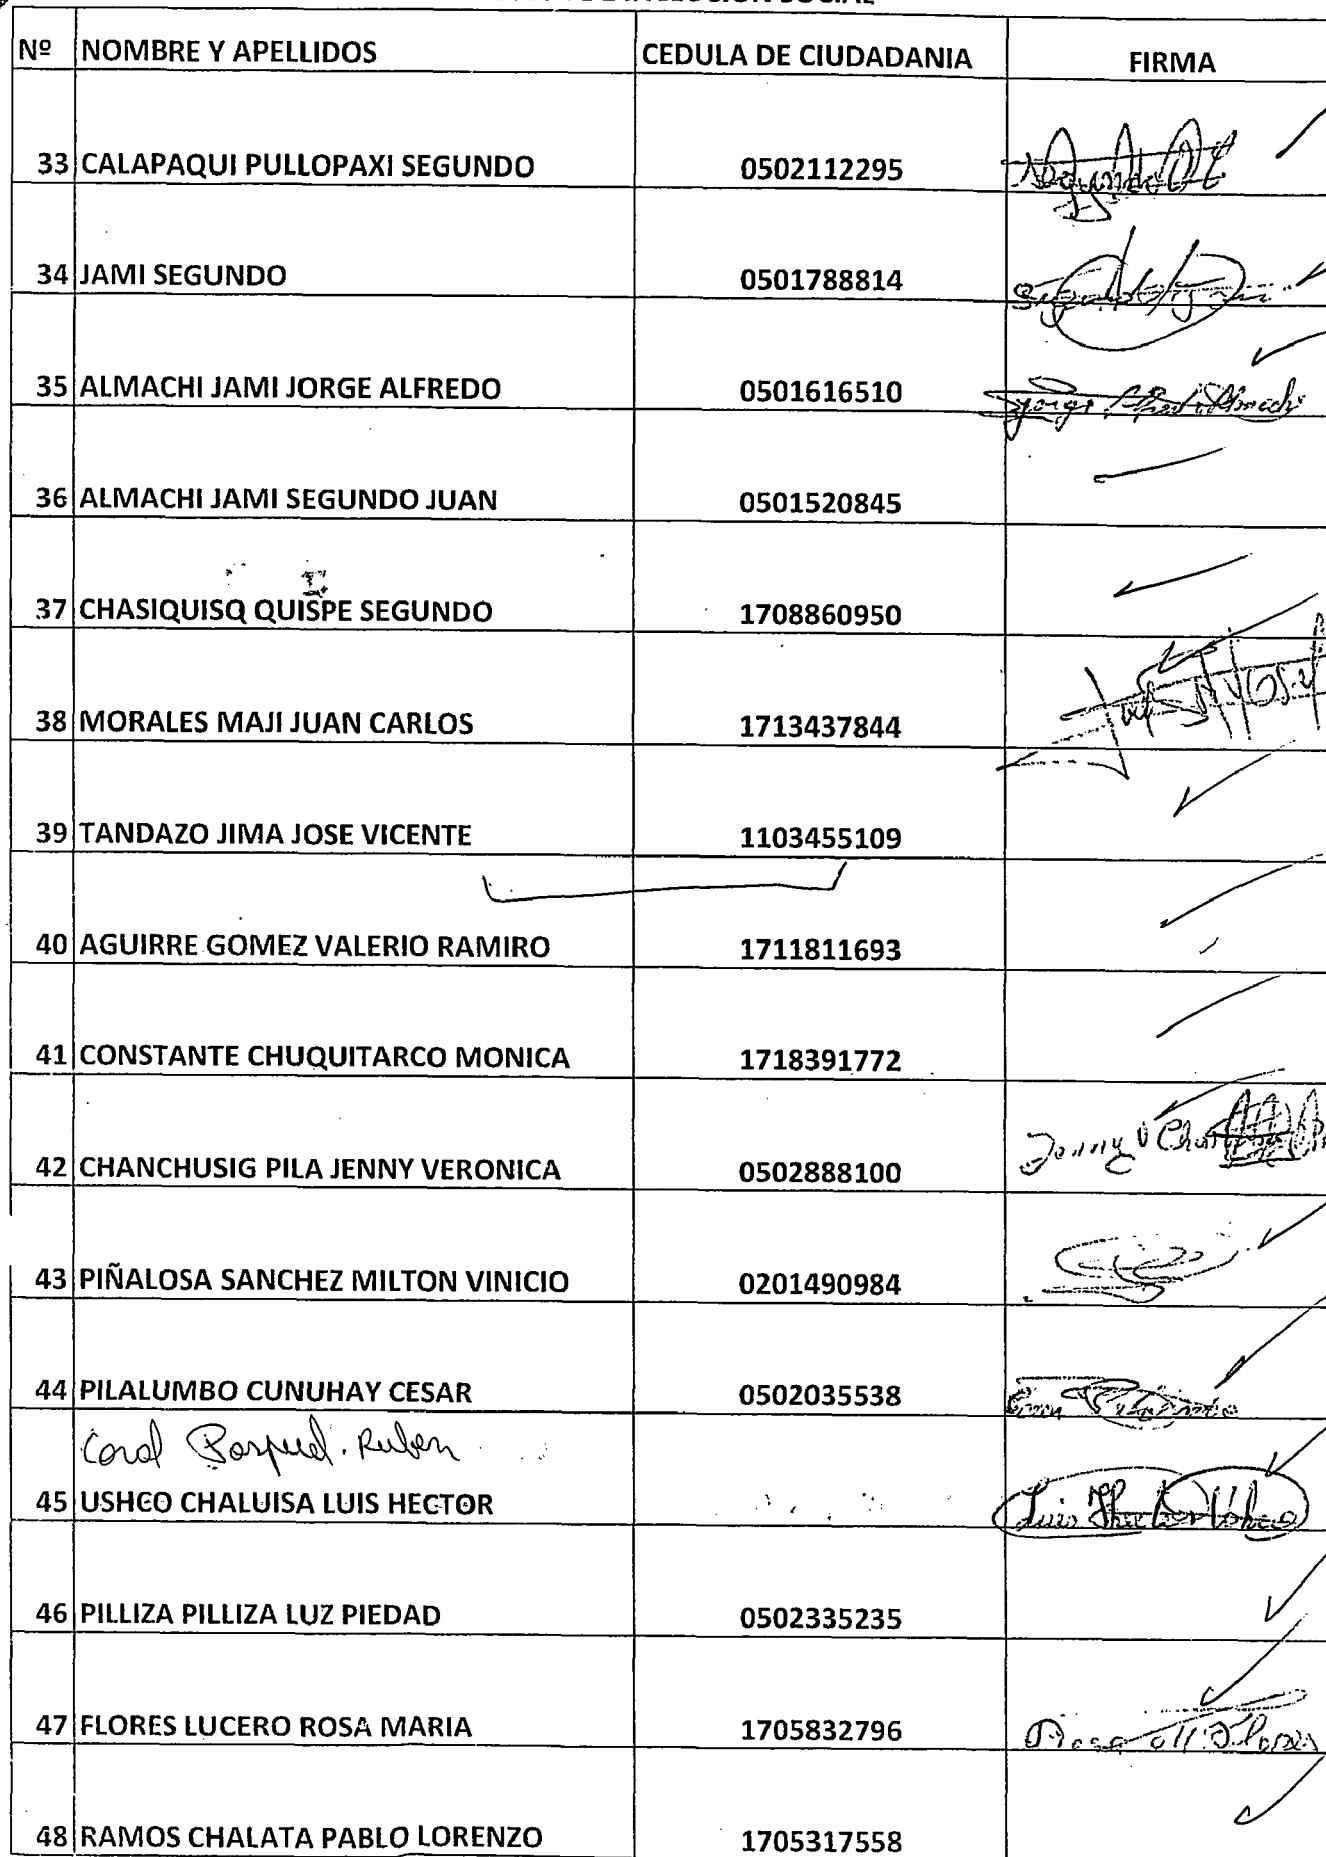 SOCIAL
Nº NOMBRE Y APELLIDOS CEDULA DE CIUDADANIA FIRMA
33 CALAPAQUI PULLOPAXI SEGUNDO 0502112295
34 JAMI SEGUNDO 0501788814
35 ALMACHI JAMI JORGE ALFREDO 0501616510 Jorge Alfredo Almachi
36 ALMACHI JAMI SEGUNDO JUAN 0501520845
37 CHASIQUISQ QUISPE SEGUNDO 1708860950
38 MORALES MAJI JUAN CARLOS 1713437844
39 TANDAZO JIMA JOSE VICENTE 1103455109
40 AGUIRRE GOMEZ VALERIO RAMIRO 1711811693
41 CONSTANTE CHUQUITARCO MONICA 1718391772
42 CHANCHUSIG PILA JENNY VERONICA 0502888100 Jenny
43 PIÑALOSA SANCHEZ MILTON VINICIO 0201490984
44 PILALUMBO CUNUHAY CESAR 0502035538
Coral Ruben
45 USHCO CHALUISA LUIS HECTOR Luis
46 PILLIZA PILLIZA LUZ PIEDAD 0502335235
47 FLORES LUCERO ROSA MARIA 1705832796 Rosa M Flores
48 RAMOS CHALATA PABLO LORENZO 1705317558